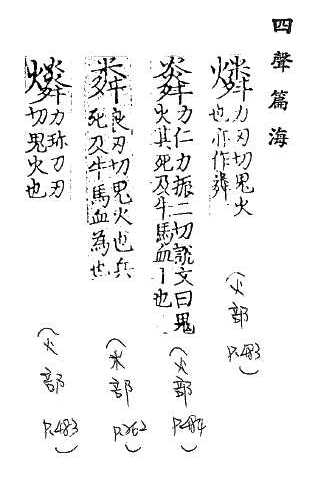 四聲篇海
燐力刃切鬼火
也亦作粦
(火部P.483)
力仁力振二切說文曰鬼
火其死及牛馬血一也
(火部P.484)
粦良刃切鬼火也兵
死及牛馬血為也
(米部P.262)
力珎力刃
切鬼火也
(火部P.483)